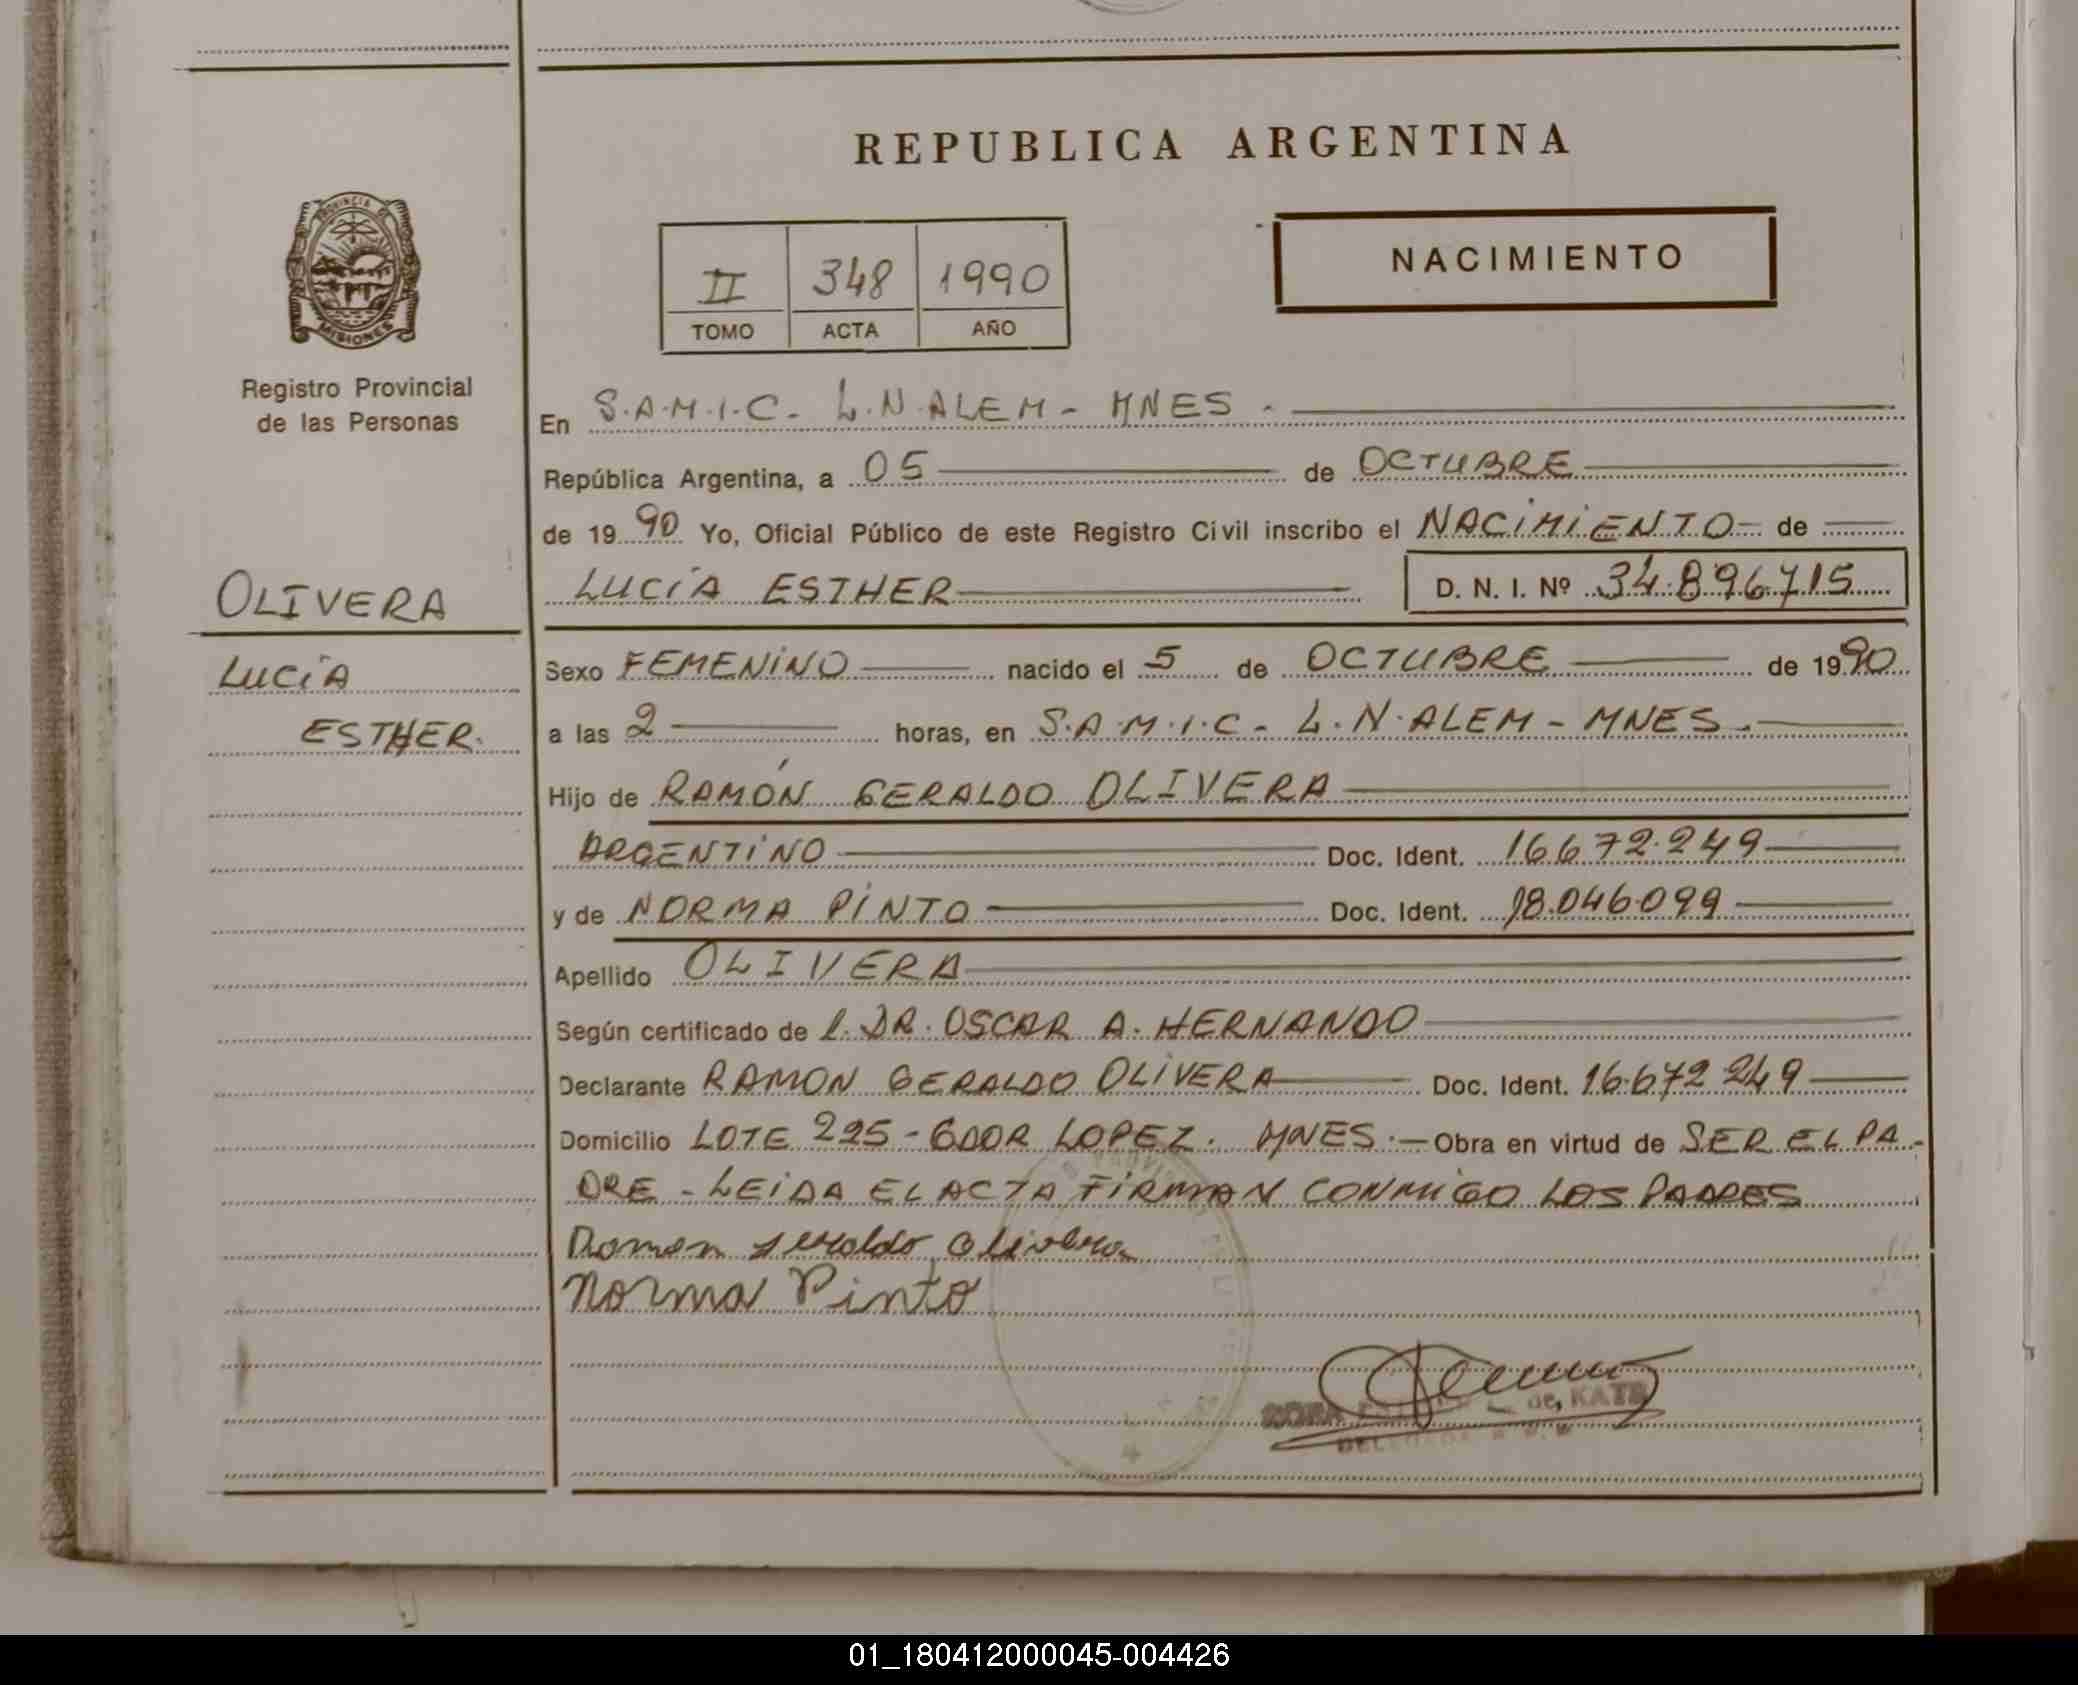 REPUBLICA ARGENTINA
PROVINCIA DE
MISIONES
Registro Provincial
de las Personas
II 348 1990
TOMO ACTA AÑO
NACIMIENTO
En S.A.M.I.C. - L.N.ALEM - MNES -
República Argentina, a 05 de OCTUBRE
de 1990 Yo, Oficial Público de este Registro Civil inscribo el NACIMIENTO de
LUCÍA ESTHER D. N. I. Nº 34.896.715
OLIVERA
LUCÍA
ESTHER.
Sexo FEMENINO nacido el 5 de OCTUBRE de 1990
a las 2 horas, en S.A.M.I.C. - L.N.ALEM - MNES.
Hijo de RAMÓN GERALDO OLIVERA
ARGENTINO Doc. Ident. 16.672.249
y de NORMA PINTO Doc. Ident. 18.046.099
Apellido OLIVERA
Según certificado de l. DR. OSCAR A. HERNANDO
Declarante RAMON GERALDO OLIVERA Doc. Ident. 16.672.249
Domicilio LOTE 225 - GDOR LOPEZ. MNES. - Obra en virtud de SER EL PA-
DRE - LEIDA EL ACTA FIRMAN CONMIGO LOS PADRES
Ramon Geraldo Olivera
Norma Pinto
de, KATZ
01_180412000045-004426